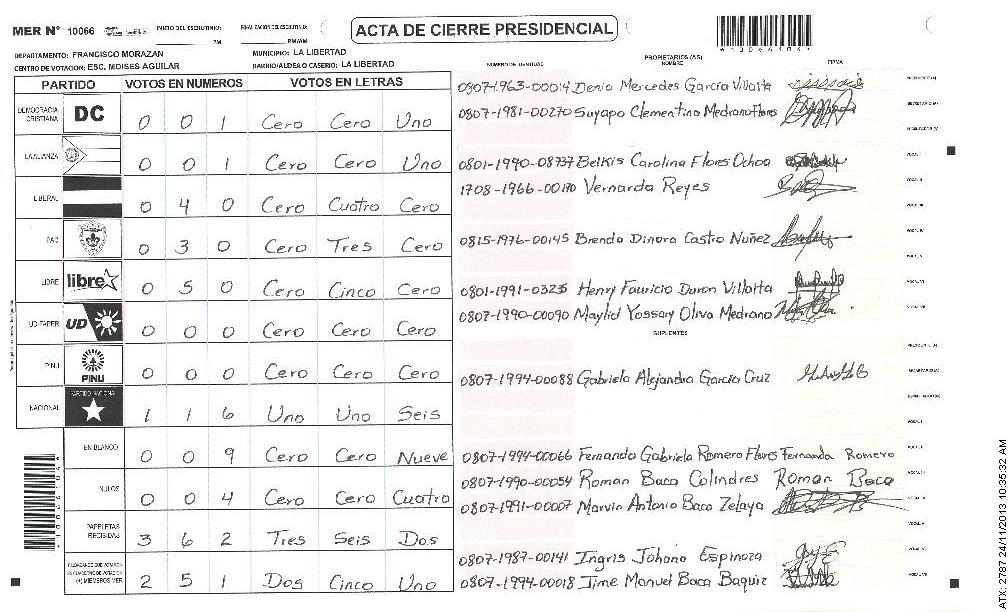 MER Nº 10066 INICIO DEL ESCRUTINIO: FINALIZACION DEL ESCRUTINIO: ACTA DE CIERRE PRESIDENCIAL
PM PM/AM
DEPARTAMENTO: FRANCISCO MORAZAN MUNICIPIO: LA LIBERTAD
CENTRO DE VOTACION: ESC. MOISES AGUILAR BARRIO/ALDEA O CASERIO: LA LIBERTAD
NUMERO DE IDENTIDAD PROPIETARIOS (AS) NOMBRE FIRMA
PARTIDO VOTOS EN NUMEROS VOTOS EN LETRAS
DEMOCRACIA CRISTIANA DC 0 0 1 Cero Cero Uno
LA ALIANZA 0 0 1 Cero Cero Uno
LIBERAL 0 4 0 Cero Cuatro Cero
PAC 0 3 0 Cero Tres Cero
LIBRE libre 0 5 0 Cero Cinco Cero
UD-FAPER UD 0 0 0 Cero Cero Cero
PINU PINU 0 0 0 Cero Cero Cero
NACIONAL PARTIDO NACIONAL 1 1 6 Uno Uno Seis
EN BLANCO 0 0 9 Cero Cero Nueve
NULOS 0 0 4 Cero Cero Cuatro
PAPELETAS RECIBIDAS 3 6 2 Tres Seis Dos
(+) MIEMBROS MER 2 5 1 Dos Cinco Uno
0807-1963-00014 Denia Mercedes García Villalta
0807-1981-00270 Suyapa Clementina Medrano Flores
0801-1990-08737 Belkis Carolina Flores Ochoa
1708-1966-00170 Vernarda Reyes
0815-1976-00145 Brenda Dinora Castro Nuñez
Henry Fauricio Duron Villalta
0807-1990-00090 Maylid Yossary Oliva Medrano
SUPLENTES
0807-1994-00088 Gabriela Alejandra García Cruz
0807-1994-00066 Fernanda Gabriela Romero Flores Fernanda Romero
0807-1990-00054 Roman Baca Colindres Roman Baca
0807-1991-00007 Marvin Antonio Baca Zelaya
0807-1987-00141 Ingris Johana Espinoza
0807-1994-00018 Manuel Baca
*100661041*
ATX 2787 24/11/2013 10:35:32 AM